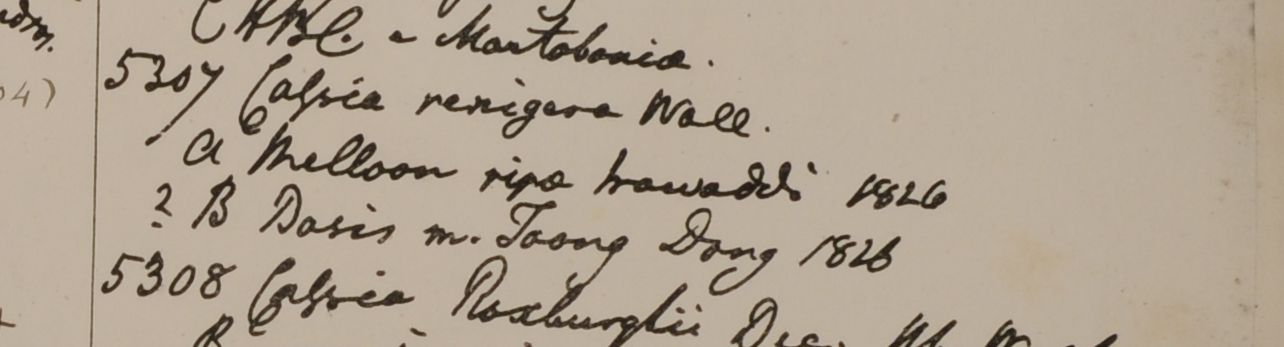 CHBC. e Martobania.
5307 Cassia renigera Wall.
a Melloon ripa Irawaddi 1826
? B Basis m. Toong Dong 1826
5308 Cassia Roxburghii Dec.